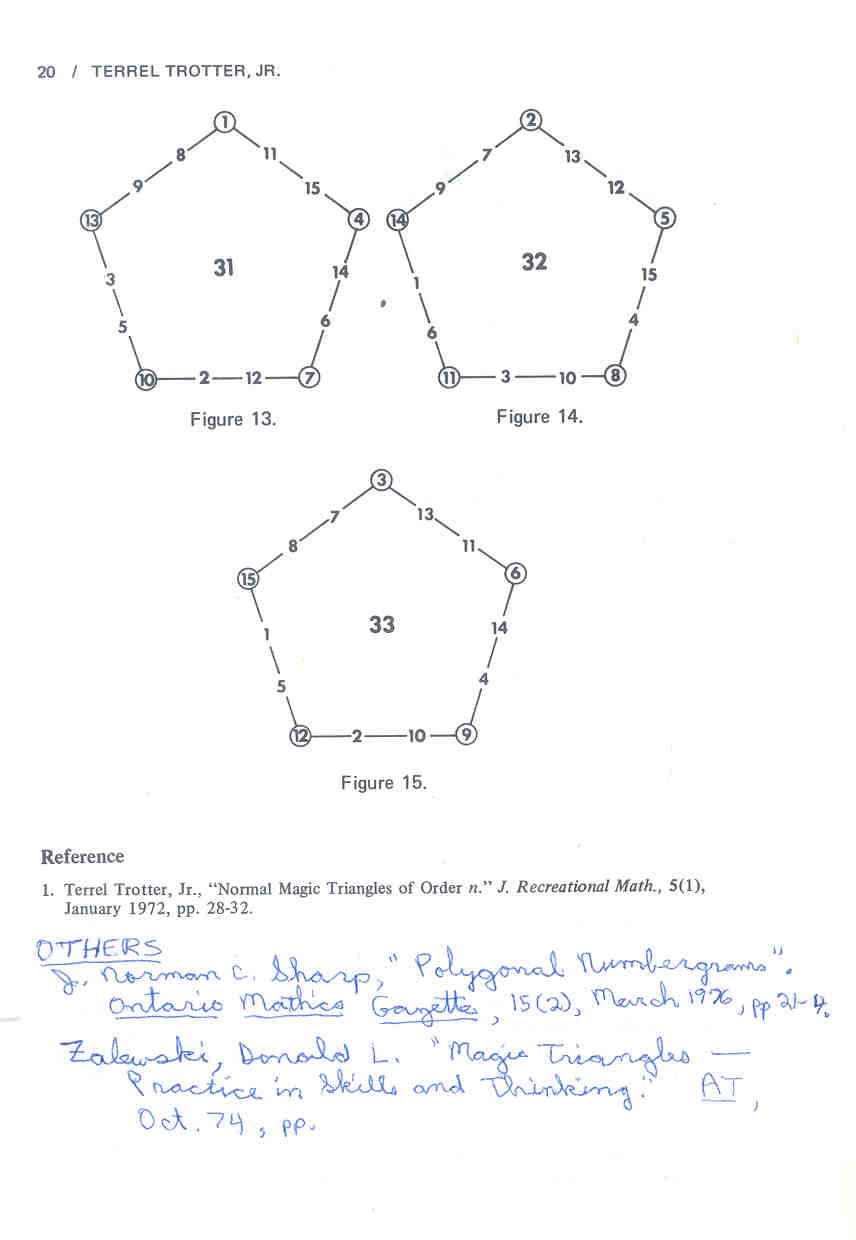 20 / TERREL TROTTER, JR.
1
8 11
9 15
13 4
31
3 14
5 6
10 2 12 7
Figure 13.
2
7 13
9 12
14 5
32
1 15
6 4
11 3 10 8
Figure 14.
3
7 13
8 11
15 6
33
1 14
5 4
12 2 10 9
Figure 15.
Reference
1. Terrel Trotter, Jr., “Normal Magic Triangles of Order n.” J. Recreational Math., 5(1),
January 1972, pp. 28-32.
OTHERS
J. Norman C. Sharp, "Polygonal Numbergrams".
Ontario Mathics Gazette, 15(2), March 1976, pp 21-4.
Zalewski, Donald L. "Magic Triangles —
Practice in Skills and Thinking." AT,
Oct. 74, pp.